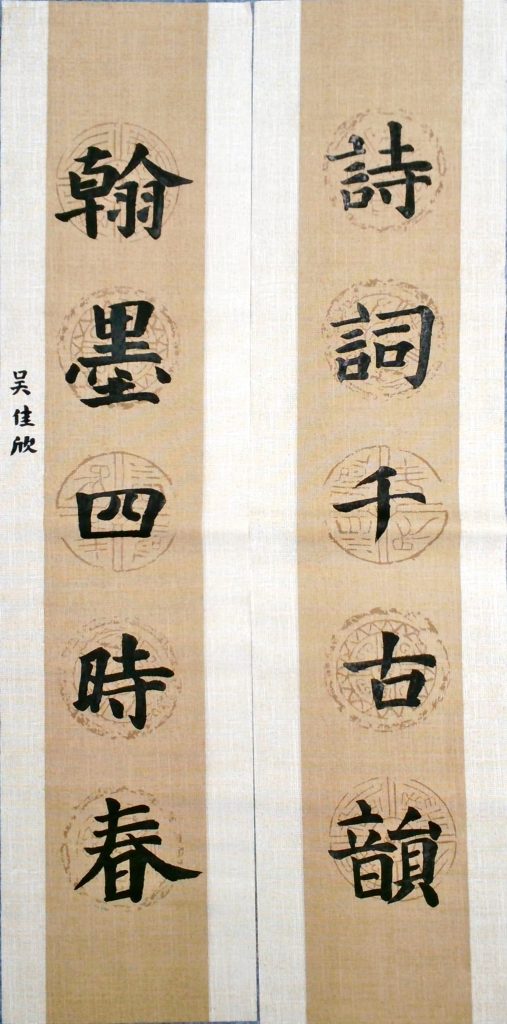 詩詞千古韻
翰墨四時春
吴佳欣